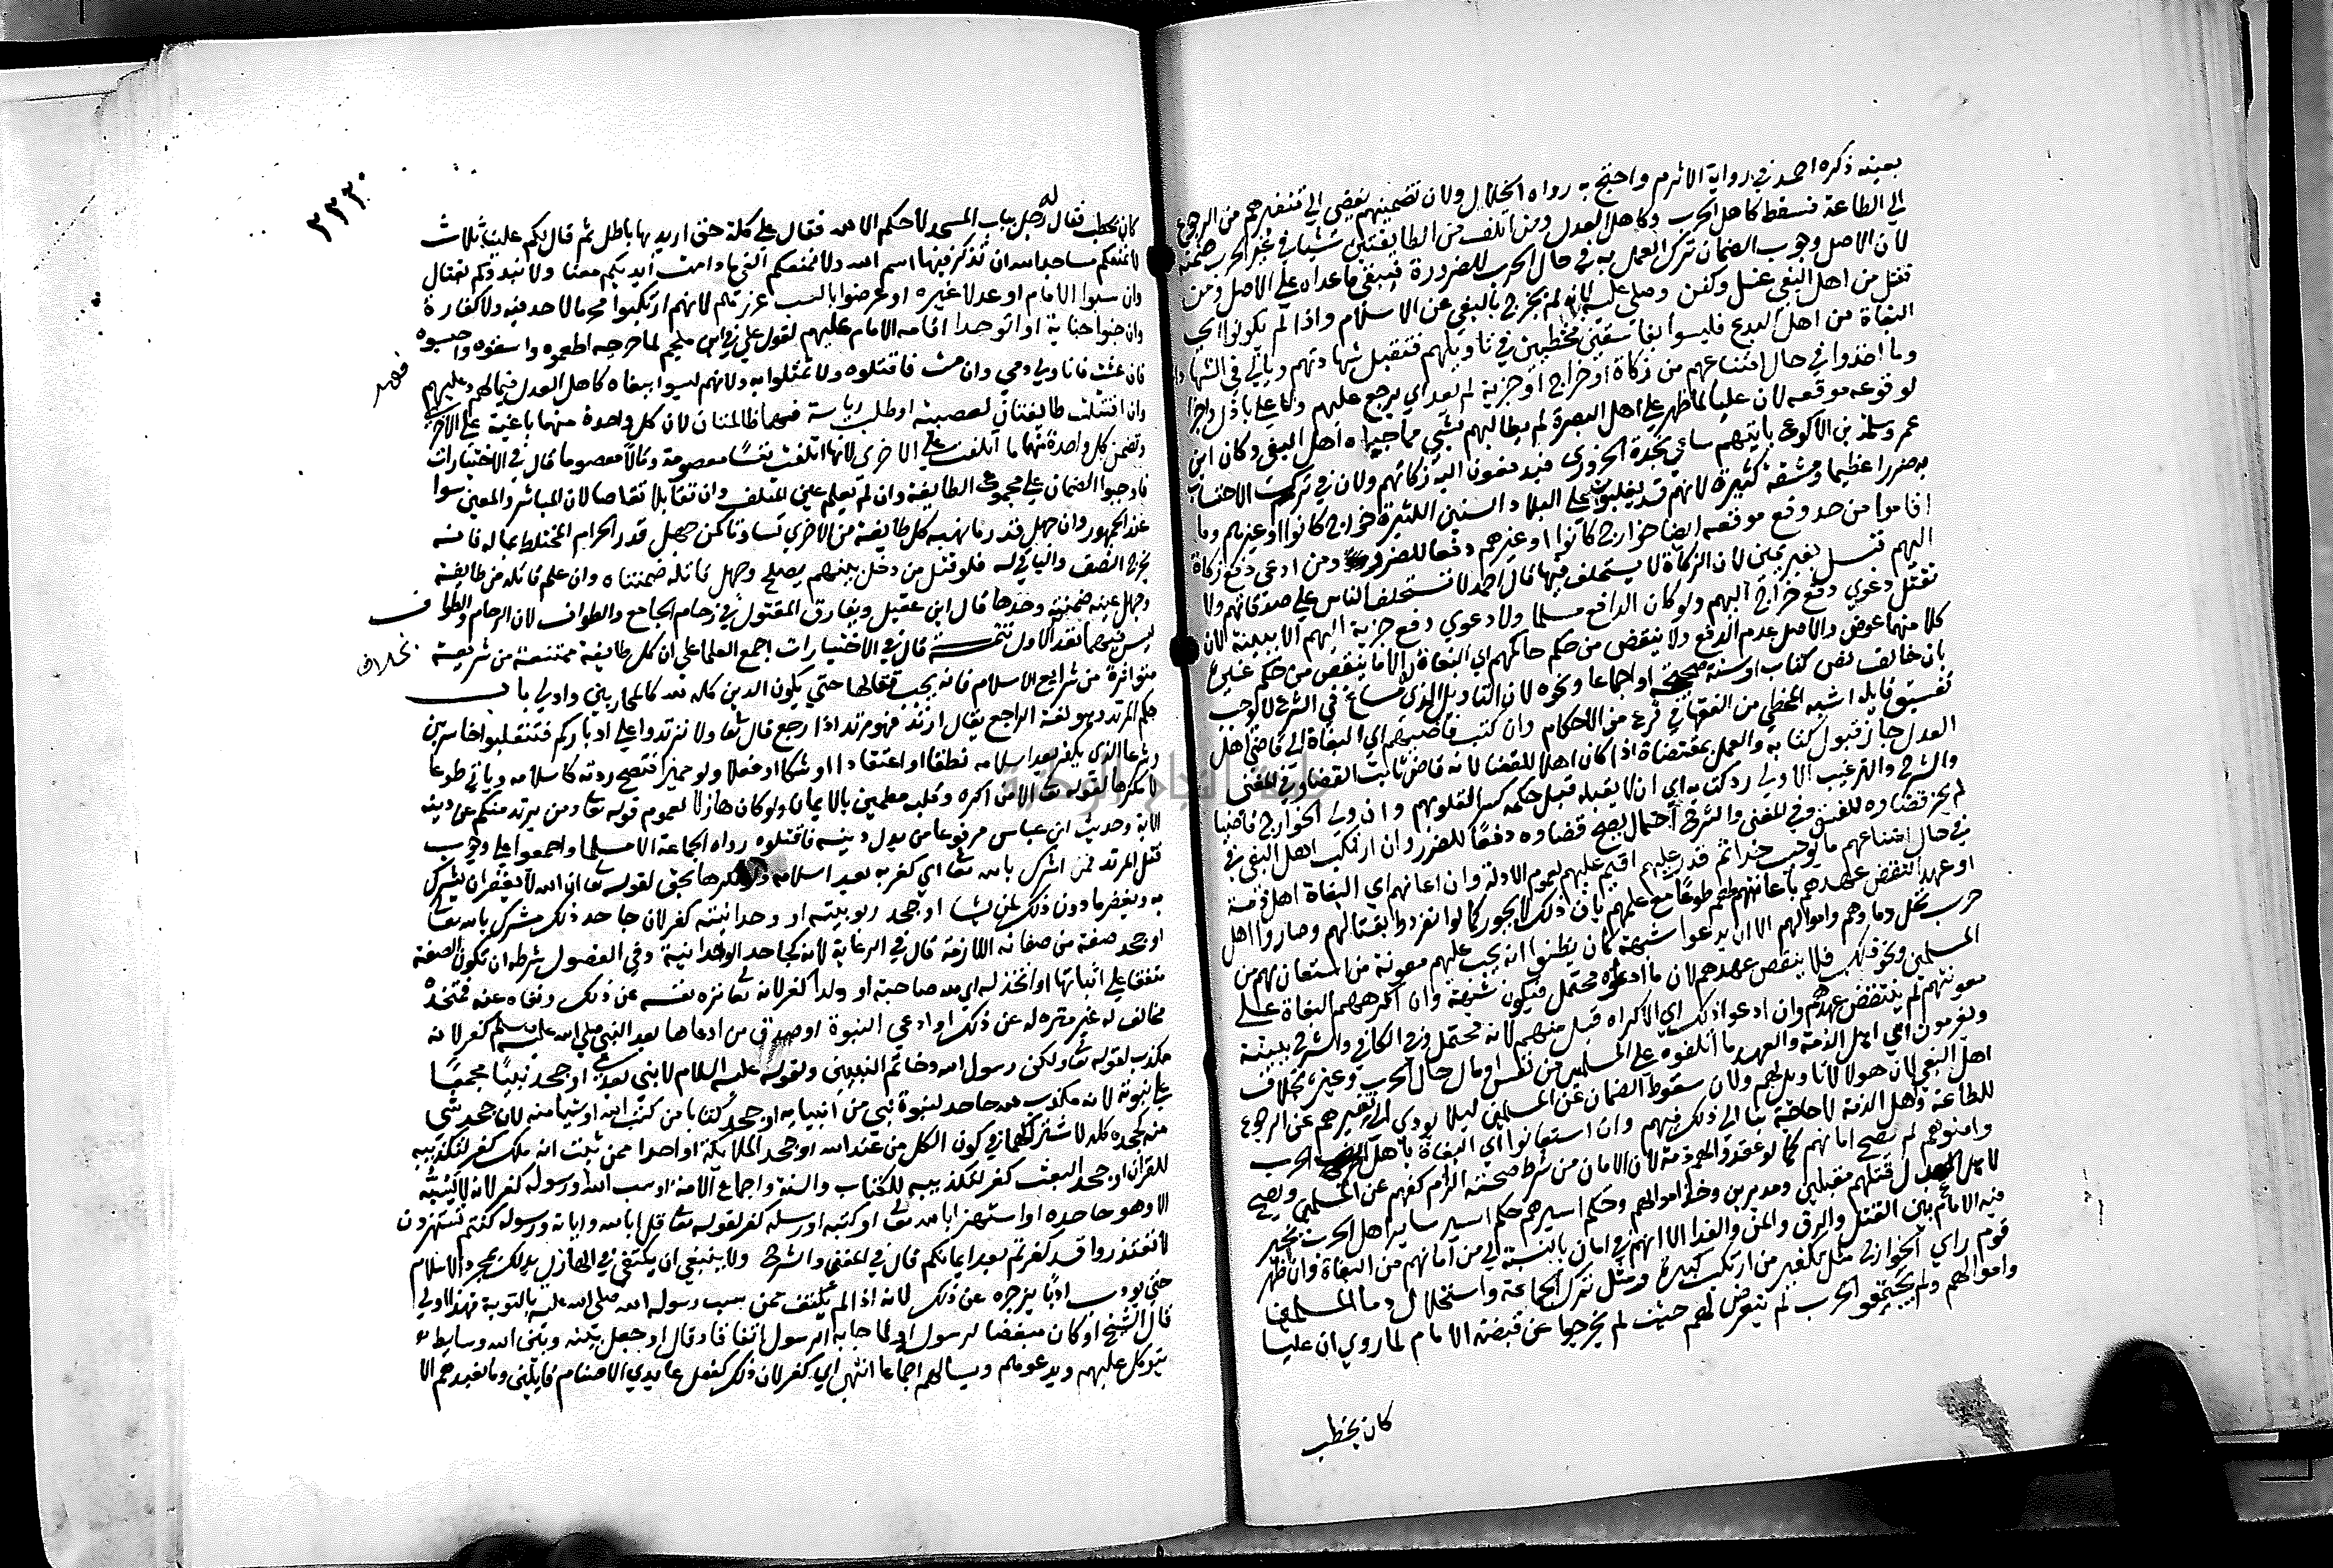 بعينه ذكره احمد في رواية الاثرم واحتج به رواه الخلال ولان تضمينهم يفضي الي تنفيرهم من الرجوع
الي الطاعة فسقط كاهل الحرب وكاهل العدل ومن اتلف من الطايفتين شيئا في غير الحرب ضمنه
لان الاصل وجوب الضمان ترك العمل به في حال الحرب للضرورة فيبقي ما عداه علي الاصل ومن
قتل من اهل البغي غسل وكفن وصلي عليه لانه لم يخرج بالبغي عن الاسلام واذا لم يكونوا اي
البغاة من اهل البدع فليسوا بفاسقين مخطيين في تاويلهم فتقبل شهادتهم وياتي في الشهادات
وما اخذوا في حال امتناعهم من زكاة او خراج او جزية لم يعد اي يرجع عليهم ولا علي باذل واجزا
لوقوعه موقعه لان عليا لما ظهر علي اهل البصرة لم يطالبهم بشي مما جباه اهل البغي وكان ابن
عمر وسلمة بن الاكوع ياتيهم ساعي نجدة الحروري فيدفعون اليه زكاتهم ولان في ترك الاحتساب
به ضررا عظيما ومشقة كثيرة لانهم قد يغلبون علي البلاد السنين الكثيرة خوارج كانوا او غيرهم وما
اقاموا من حد وقع موقعه ايضا خوارج كانوا او غيرهم دفعا للضرر ومن ادعي دفع زكاة
اليهم قبل بغير يمين لان الزكاة لا يستحلف فيها قال احمد لا نستحلف الناس علي صدقاتهم ولا
تقبل دعوي دفع خراج اليهم ولو كان الدافع مسلما ولا دعوي دفع جزية اليهم الا ببينة لان
كلا منهما عوض والاصل عدم الدفع ولا ينقض من حكم حاكمهم اي البغاة الا ما ينقض من حكم غيره
بان خالف نص كتاب او سنة صحيحة او اجماعا ونحوه لان التاويل الذي له مساغ في الشرع لا يوجب
تفسيق قايله اشبه المخطي من الفقها في فرع من الاحكام وان كتب قاضيهم اي البغاة الي قاضي اهل
العدل جاز قبول كتابه والعمل بمقتضاه اذا كان اهلا للقضا لانه قاض ثابت القضا وفي المغني
والشرح والترغيب الاولي رد كتابه اي ان لا يقبله قبل حكمه كسرا لقلوبهم وان ولي الخوارج قاضيا
لم يجز قضاوه للفسق وفي المغني والشرح احتمال يصح قضاوه دفعا للضرر وان ارتكب اهل البغي في
في حال امتناعهم ما يوجب حدا ثم قدر عليهم اقيم عليهم لعموم الادلة وان اعانهم اي البغاة اهل ذمة
او عهد انتقض عهدهم باعانتهم لهم طوعا مع علمهم بان ذلك لا يجوز كما لو انفردوا بقتالهم وصاروا اهل
حرب تحل دماوهم واموالهم الا ان يدعوا شبهة كان يظنوا انه يجب عليهم معونة من استعان بهم من
المسلمين ونحو ذلك فلا ينتقض عهدهم لان ما ادعوه محتمل فيكون شبهة وان اكرههم البغاة علي
معونتهم لم ينتقض عهدهم وان ادعوا ذلك اي الاكراه قبل منهم لانه محتمل وفي الكافي والشرح ببينة
ويغرمون اي اهل الذمة والعهد ما اتلفوه علي المسلمين من نفس او مال حال الحرب وغيره بخلاف
اهل البغي لان هولا لا تاويل لهم ولان سقوط الضمان عن المسلمين ليلا يودي الي تنفيرهم عن الرجوع
للطاعة واهل الذمة لا حاجة بنا الي ذلك فيهم وان استعانوا اي البغاة باهل الحرب
وامنوهم لم يصح امانهم كما لو عقدوا لهم ذمة لان الامان من شرط صحته الزام كفهم عن المسلمين ويصح
لاهل العدل قتلهم مقبلين ومدبرين وخذ اموالهم وحكم اسيرهم حكم اسير ساير اهل الحرب يخير
فيه الامام بين القتل والرق والمن والفدا الا انهم في امان بالنسبة الي من امانهم من البغاة وان اظهر
قوم راي الخوارج مثل تكفير من ارتكب كبيرة ومثل ترك الجماعة واستحلال دما المسلمين
واموالهم ولم يجتمعوا لحرب لم نتعرض لهم حيث لم يخرجوا عن قبضة الامام لما روي ان عليا
كان يخطب
٢٣٣
كان يخطب فقال له رجل بباب المسجد لا حكم الا لله فقال علي كلمة حق اريد بها باطل ثم قال لكم علينا ثلاث
لا نمنعكم مساجد الله ان تذكر فيها اسم الله ولا نمنعكم الفي ما دامت ايديكم معنا ولا نبدوكم بقتال
وان سبوا الامام او عدلا غيره او عرضوا بالسب عزرهم لانهم ارتكبوا محرما لا حد فيه ولا كفارة
وان جنوا جناية او اتوا حدا اقامه الامام عليهم لقول علي في ابن ملجم لما جرحه اطعموه واسقوه واحبسوه
فان عشت فانا ولي دمي وان مت فاقتلوه ولا تمثلوا به ولانهم ليسوا ببغاة كاهل العدل فيما لهم وعليهم
وان اقتتلت طايفتان لعصبية او طلب رياسة فهما ظالمتان لان كل واحدة منهما باغية علي الاخري
وتضمن كل واحدة منهما ما اتلفت علي الاخري لانها اتلفت نفسا معصومة ومالا معصوما قال في الاختيارات
فاوجبوا الضمان علي مجموع الطايفة وان لم يعلم عين المتلف وان تقابلا تقاصا لان المباشر والمعين سوا
عند الجمهور وان جهل قدر ما نهبه كل طايفة من الاخري تساوتا كمن جهل قدر الحرام المختلط بماله فانه
يخرج النصف والباقي له فلو قتل من دخل بينهم يصلح وجهل قاتله ضمنتاه وان علم قاتله من طايفة
وجهل عينه ضمنته وحدها قال ابن عقيل ويفارق المقتول في زحام الجامع والطواف لان الزحام والطواف
ليس فيهما تعد الاول تتمة قال في الاختيارات اجمع العلما علي ان كل طايفة ممتنعة من شريعة بخلاف
متواترة من شرايع الاسلام فانه يجب قتالها حتي يكون الدين كله لله كالمحاربين واولي باب
حكم المرتد وهو لغة الراجع يقال ارتد فهو مرتد اذا رجع قال تعا ولا ترتدوا علي ادباركم فتنقلبوا خاسرين
وشرعا الذي يكفر بعد اسلامه نطقا او اعتقادا او شكا او فعلا ولو مميز فتصح ردته كاسلامه وياتي طوعا
لا مكرها لقوله تعا الا من اكره وقلبه مطمين بالايمان ولو كان هازلا لعموم قوله تعا ومن يرتد منكم عن دينه
الاية وحديث ابن عباس مرفوعا من بدل دينه فاقتلوه رواه الجماعة الا مسلما واجمعوا علي وجوب
قتل المرتد فمن اشرك بالله تعا اي كفر به بعد اسلامه ولو مكرها بحق لقوله تعا ان الله لا يغفر ان يشرك
به ويغفر ما دون ذلك لمن يشا او جحد ربوبيته او وحدانيته كفر لان جاحد ذلك مشرك بالله تعا
او جحد صفة من صفاته اللازمة قال في الرعاية لانه كجاحد الوحدانية وفي الفصول شرطه ان تكون الصفة
متفقا علي اثباتها او اتخذ له اي لله صاحبة او ولدا كفر لانه تعا نزه نفسه عن ذلك ونفاه عنه فمتخذه
مخالف له غير منزه له عن ذلك او ادعي النبوة او صدق من ادعاها بعد النبي صلي الله عليه وسلم كفر لانه
مكذب لقوله تعا ولكن رسول الله وخاتم النبيين ولقوله عليه السلام لا نبي بعدي او جحد نبيا مجمعا
علي نبوته لانه مكذب لله جاحد لنبوة نبي من انبيايه او جحد كتابا من كتب الله او شيا منه لان جحد شي
منه كجحده كله لاشتراكهما في كون الكل من عند الله او جحد الملايكة او واحدا ممن ثبت انه ملك كفر لتكذيبه
للقران او جحد البعث كفر لتكذيبه للكتاب والسنة واجماع الامة او سب الله او رسوله كفر لانه لا يسبه
الا وهو جاحد به او استهزا بالله تعا او كتبه او رسله كفر لقوله تعا قل ابالله واياته ورسوله كنتم تستهزون
لا تعتذروا قد كفرتم بعد ايمانكم قال في المغني والشرح ولا ينبغي ان يكتفي في الهازل بذلك بمجرد الاسلام
حتي يودب ادبا يزجره عن ذلك لانه اذا لم يكتف ممن سب رسول الله صلي الله عليه بالتوبة فهذا اولي
قال الشيخ او كان مبغضا لرسوله او لما جا به الرسول اتفاقا وقال او جعل بينه وبين الله وسايط
يتوكل عليهم ويدعوهم ويسالهم اجماعا انتهي اي كفر لان ذلك كفعل عابدي الاصنام قايلين ما نعبدهم الا